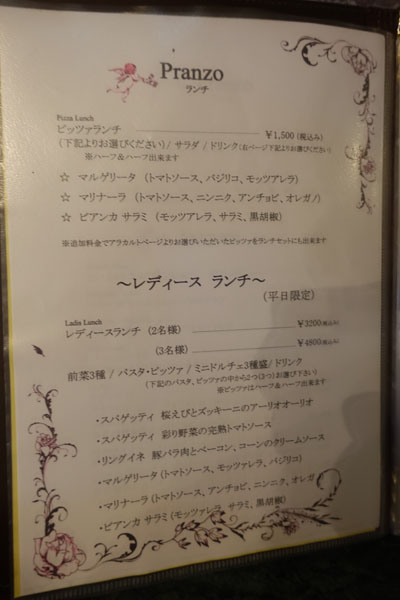 Pranzo
ランチ
Pizza Lunch
ピッツァランチ ￥1,500 (税込み)
(下記よりお選びください) / サラダ / ドリンク (右ページ下記よりお選びください)
※ハーフ＆ハーフ出来ます
☆ マルゲリータ (トマトソース、バジリコ、モッツアレラ)
☆ マリナーラ (トマトソース、ニンニク、アンチョビ、オレガノ)
☆ ビアンカ サラミ (モッツアレラ、サラミ、黒胡椒)
※追加料金でアラカルトページよりお選びいただいたピッツァをランチセットにも出来ます
～レディース ランチ～
(平日限定)
Ladis Lunch
レディースランチ (2名様) ￥3200(税込み)
(3名様) ￥4800(税込み)
前菜3種 / パスタ・ピッツァ / ミニドルチェ3種盛 / ドリンク
(下記のパスタ、ピッツァの中から2つ(3つ)お選び下さい)
※ピッツァはハーフ＆ハーフ出来ます
・スパゲッティ 桜えびとズッキーニのアーリオオーリオ
・スパゲッティ 彩り野菜の完熟トマトソース
・リングイネ 豚バラ肉とベーコン、コーンのクリームソース
・マルゲリータ (トマトソース、モッツァレラ、バジリコ)
・マリナーラ (トマトソース、アンチョビ、ニンニク、オレガ
・ビアンカ サラミ (モッツァレラ、サラミ、黒胡椒)